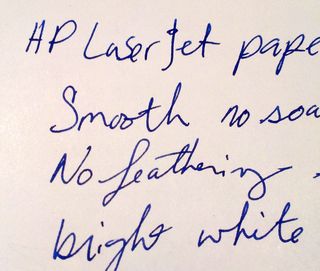 HP LaserJet pape
Smooth no soa
No feathering .
bright white